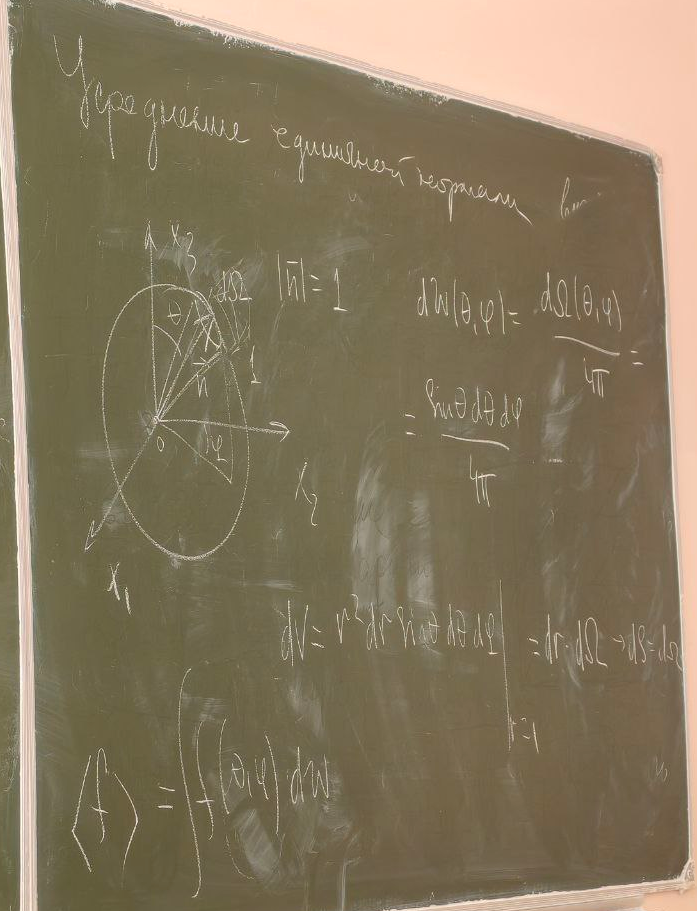 Усреднение единичной нормали
x₃
dΩ
|n⃗| = 1
dW(θ,φ) = dΩ(θ,φ)/4π =
θ
n⃗
1
= sinθdθdφ/4π
0
φ
x₂
x₁
dV = r²dr sinθdθdφ|r=1 = dr·dΩ → dS = dΩ
⟨f⟩ = ∫f(θ,φ)dW